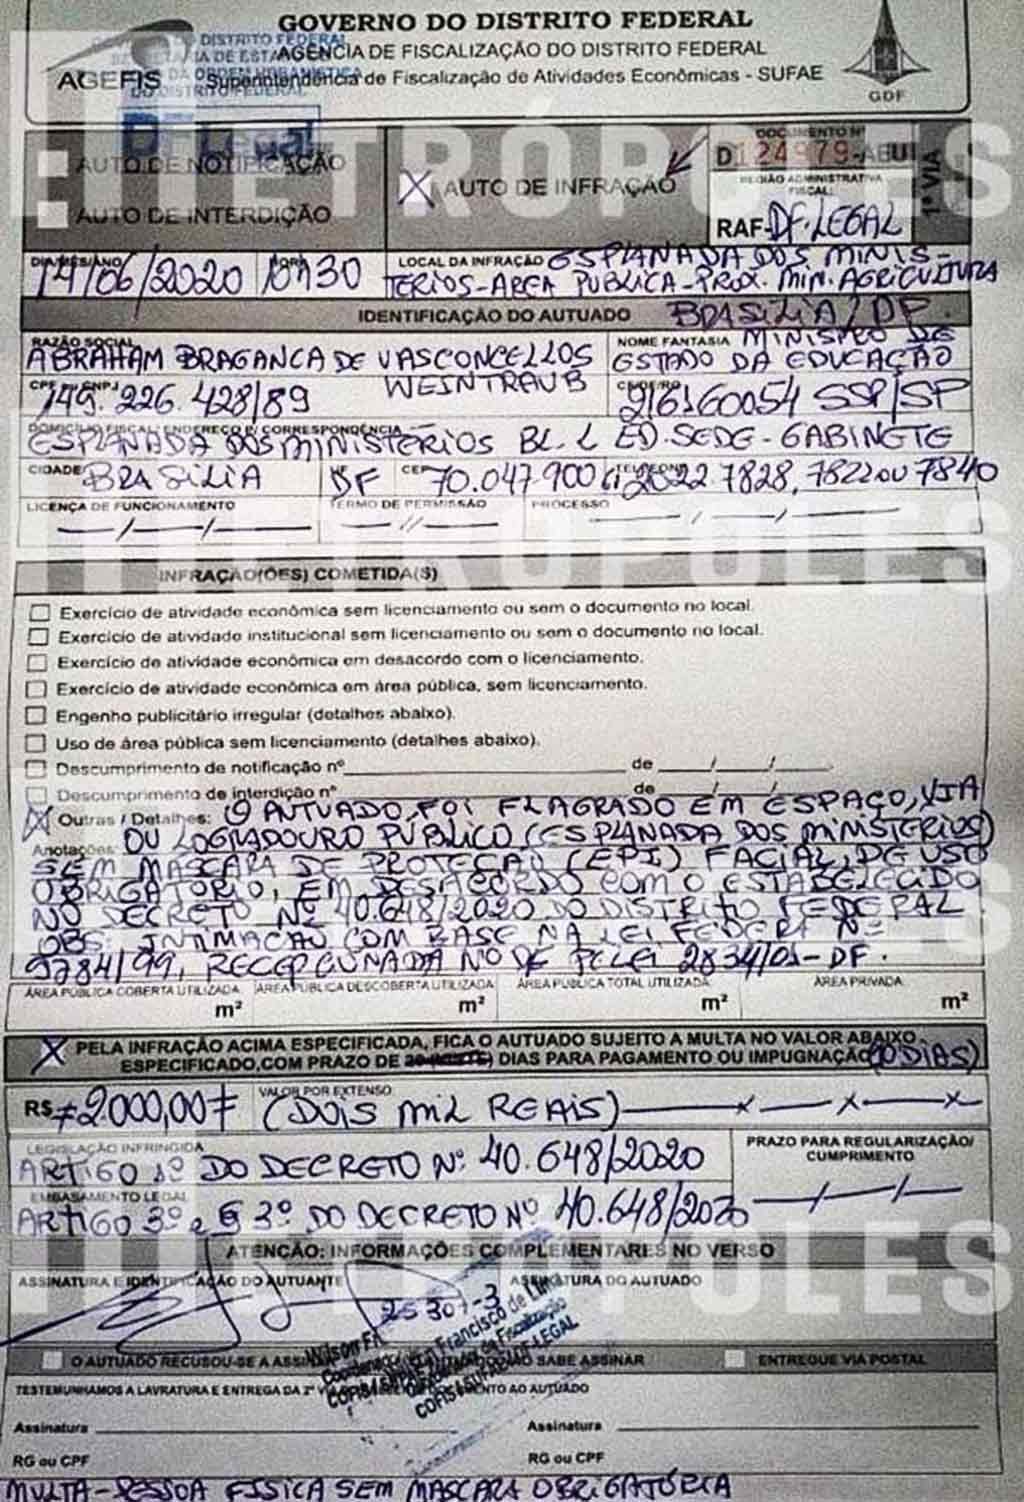 GOVERNO DO DISTRITO FEDERAL
AGÊNCIA DE FISCALIZAÇÃO DO DISTRITO FEDERAL
AGEFIS Superintendência de Fiscalização de Atividades Econômicas - SUFAE
GDF
DF Legal
METRÓPOLES
DOCUMENTO Nº
D124979-AEU
1ª VIA
AUTO DE NOTIFICAÇÃO
X AUTO DE INFRAÇÃO
REGIÃO ADMINISTRATIVA FISCAL:
AUTO DE INTERDIÇÃO
RAF- DF-LEGAL
DIA/MÊS/ANO 14/06/2020 HORA 10h30
LOCAL DA INFRAÇÃO ESPLANADA DOS MINIS-
TÉRIOS-AREA PUBLICA-PROX. MIN. AGRICULTURA
IDENTIFICAÇÃO DO AUTUADO BRASILIA/DF.
RAZÃO SOCIAL ABRAHAM BRAGANCA DE VASCONCELLOS
WEINTRAUB
NOME FANTASIA MINISTRO DE
ESTADO DA EDUCAÇÃO
CPF ou CNPJ 149.226.428/89
216160054 SSP/SP
DOMICÍLIO FISCAL: ENDEREÇO P/ CORRESPONDÊNCIA
ESPLANADA DOS MINISTÉRIOS BL. L ED. SEDE - GABINETE
CIDADE BRASILIA
UF DF
CEP 70.047.900
TELEFONE 2022.7828, 7822 ou 7840
LICENÇA DE FUNCIONAMENTO
TERMO DE PERMISSÃO
PROCESSO
METRÓPOLES
INFRAÇÃO(ÕES) COMETIDA(S)
Exercício de atividade econômica sem licenciamento ou sem o documento no local.
Exercício de atividade institucional sem licenciamento ou sem o documento no local.
Exercício de atividade econômica em desacordo com o licenciamento.
Exercício de atividade econômica em área pública, sem licenciamento.
Engenho publicitário irregular (detalhes abaixo).
Uso de área pública sem licenciamento (detalhes abaixo).
Descumprimento de notificação nº de / /
Descumprimento de interdição nº de / /
X Outras / Detalhes: O AUTUADO FOI FLAGRADO EM ESPAÇO, VIA
Anotações: OU LOGRADOURO PÚBLICO (ESPLANADA DOS MINISTÉRIOS)
SEM MÁSCARA DE PROTEÇÃO (EPI) FACIAL, DE USO
OBRIGATÓRIO, EM DESACORDO COM O ESTABELECIDO
NO DECRETO Nº 40.648/2020 DO DISTRITO FEDERAL.
OBS: INTIMAÇÃO COM BASE NA LEI FEDERAL Nº
9784/99, RECEPCIONADA NO DF PELEI 2834/01-DF.
ÁREA PÚBLICA COBERTA UTILIZADA m²
ÁREA PÚBLICA DESCOBERTA UTILIZADA m²
ÁREA PÚBLICA TOTAL UTILIZADA m²
ÁREA PRIVADA m²
X PELA INFRAÇÃO ACIMA ESPECIFICADA, FICA O AUTUADO SUJEITO A MULTA NO VALOR ABAIXO
ESPECIFICADO, COM PRAZO DE DIAS PARA PAGAMENTO OU IMPUGNAÇÃO (10 DIAS)
R$ 2000,00
VALOR POR EXTENSO (DOIS MIL REAIS)
LEGISLAÇÃO INFRINGIDA
ARTIGO 1º DO DECRETO Nº 40.648/2020
PRAZO PARA REGULARIZAÇÃO/
CUMPRIMENTO
EMBASAMENTO LEGAL
ARTIGO 3º e § 3º DO DECRETO Nº 40.648/2020
ATENÇÃO: INFORMAÇÕES COMPLEMENTARES NO VERSO
METRÓPOLES
ASSINATURA E IDENTIFICAÇÃO DO AUTUANTE
ASSINATURA DO AUTUADO
Francisco de Lima
COFIS/SUFAE/DF-LEGAL
O AUTUADO RECUSOU-SE A ASSINAR
NÃO SABE ASSINAR
ENTREGUE VIA POSTAL
TESTEMUNHAMOS A LAVRATURA E ENTREGA DA 2ª VIA AO AUTUADO
Assinatura
Assinatura
RG ou CPF
RG ou CPF
MULTA - PESSOA FISICA SEM MASCARA OBRIGATÓRIA